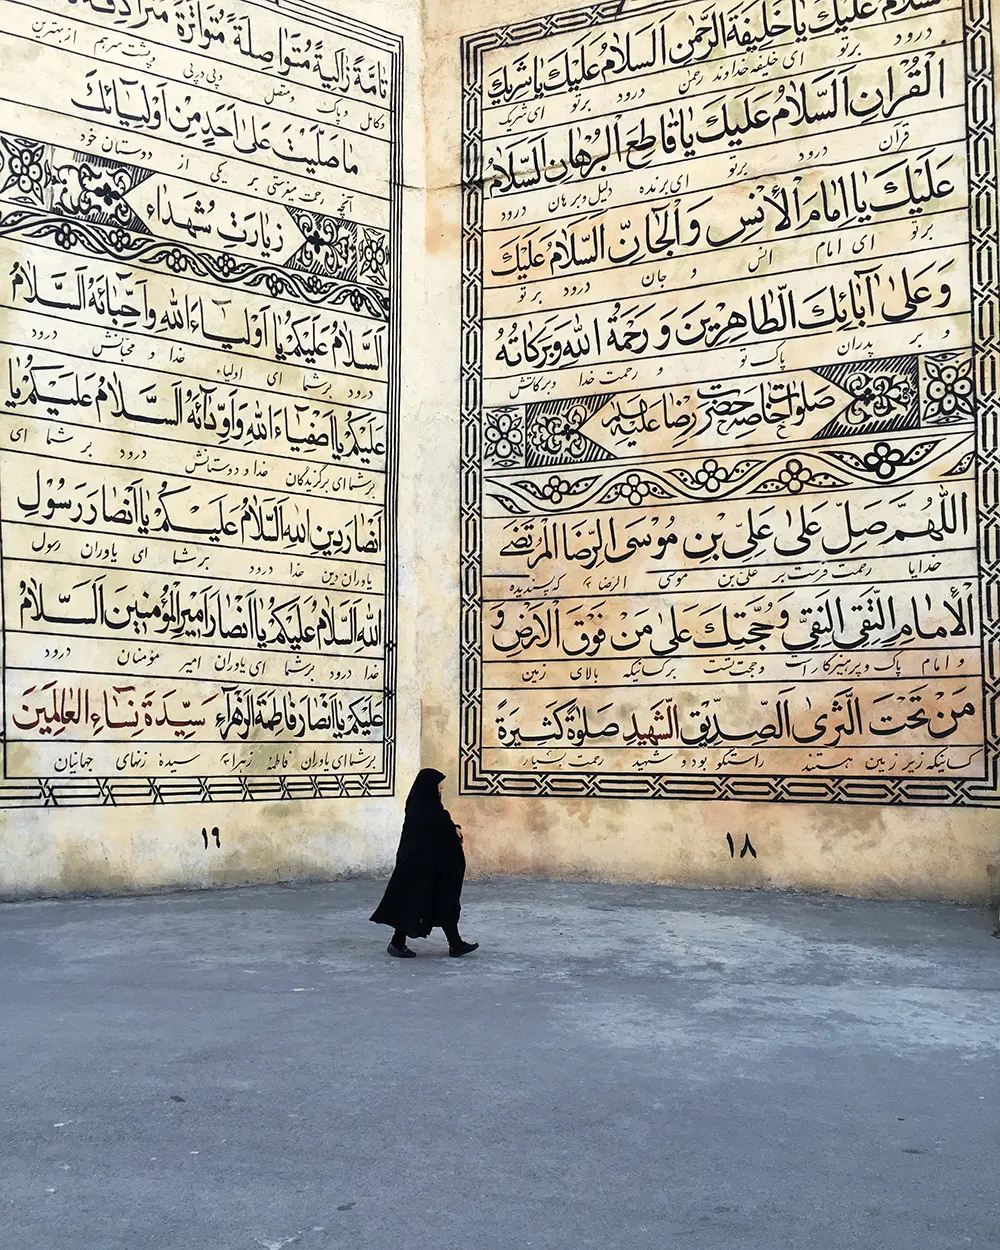 السلام عليك يا خليفة الرحمن السلام عليك يا شريك
درود برتو ای خلیفه خداوند رحمن درود برتو ای شریک
القرآن السلام عليك يا قاطع البرهان السلام
قرآن درود برتو ای برنده دلیل و برهان درود
عليك يا امام الأنس والجان السلام عليك
برتو ای امام انس و جان درود برتو
وعلى آبائك الطاهرين ورحمة الله وبركاته
و بر پدران پاک تو و رحمت خدا و برکاتش
صلوات خاصه حضرت رضا علیه السلام
اللهم صل على علي بن موسى الرضا المرتضى
خدایا رحمت فرست بر علی بن موسی الرضا که پسندیده
الأمام التقي النقي وحجتك على من فوق الأرض و
و امام پاک و پرهیزکار است و حجت تست بر کسانیکه بالای زمین
من تحت الثرى الصديق الشهيد صلوة كثيرة
کسانیکه زیر زمین هستند راستگو بود و شهید رحمت بسیار
۱۸
تامة زاكية متواصلة متواترة مترادفة
وکامل و پاک و متصل و پی در پی و پشت سر هم از بهترین
ما صليت على أحد من أوليائك
آنچه رحمت میفرستی بر یکی از دوستان خود
زیارت شهداء
السلام عليكم يا أولياء الله وأحبائه السلام
درود برشما ای اولیاء خدا و محبانش درود
عليكم يا اصفياء الله وأودائه السلام عليكم يا
برشما ای برگزیدگان خدا و دوستانش درود برشما ای
انصار دين الله السلام عليكم يا أنصار رسول
یاوران دین خدا درود برشما ای یاوران رسول
الله السلام عليكم يا انصار امير المؤمنين السلام
خدا درود برشما ای یاوران امیر مؤمنان درود
عليكم يا انصار فاطمة الزهراء سيدة نساء العالمين
برشما ای یاوران فاطمهٔ زهرا سیده زنهای جهانیان
۱۹